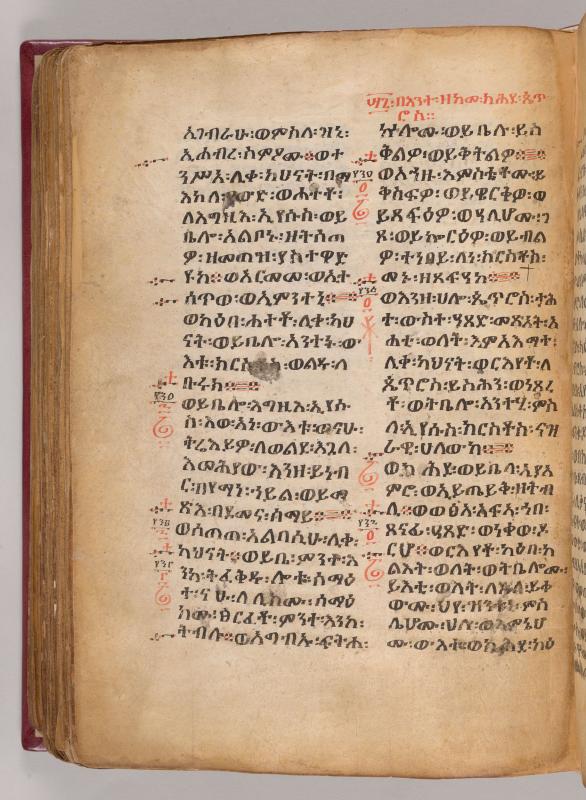 ፡በእንተ፡ዘክመ፡ክሕደ፡ጴጥ
ሮስ፡፡
እገብራሁ፡ወምስለ፡ዝኒ፡
ኢኀብረ፡ስምዖሙ፡ወተ
ንሥአ፡ሊቀ፡ካህናት፡በማ
እከለ፡ዐውድ፡ወሐተቶ፡
ለእግዚእ፡ኢየሱስ፡ወይ
ቤሎ፡አልቦኑ፡ዘትሰጠ
ዎ፡ዘመጠዝ፡ያስተዋድ
ዩከ፡ወአርመመ፡ወአት
ሰጥወ፡ወኢምንተኒ፡
ወካዕበ፡ሐተቶ፡ሊቀ፡ካህ
ናት፡ወይቤሎ፡አንተኑ፡ው
እቱ፡ክርስቶስ፡ወልዱ፡ለ
ቡሩክ፡
ወይቤሎ፡እግዚእ፡ኢየሱ
ስ፡አወ፡አነ፡ውእቱ፡ወናሁ፡
ትሬእይዎ፡ለወልደ፡እጓለ፡
እመሕያው፡እንዘ፡ይነብ
ር፡በየማነ፡ኀይል፡ወይመ
ጽእ፡በደመና፡ሰማይ፡
ወሰጠጠ፡አልባሲሁ፡ሊቀ፡
ካህናት፡ወይቤ፡ምንተ፡እ
ንከ፡ትፈቅዱ፡ሎቱ፡ሰማዕ
ተ፡ናሁ፡ለሊክሙ፡ሰማዕ
ክሙ፡ፅርፈቶ፡ምንተ፡እንከ፡
ትብሉ፡ወአግብኡ፡ፍትሐ፡
ኵሎሙ፡ወይቤሉ፡ይስ
ቅልዎ፡ወይቅትልዎ፡
ወእንዘ፡እምስቴቶሙ፡ይ
ቀስፍዎ፡ወይዌርቅዎ፡ወ
ይጸፍዕዎ፡ወሂሊሆሙ፡ገ
ጸ፡ወይኰርዕዎ፡ወይብል
ዎ፡ተነበይ፡ለነ፡ክርስቶስ፡
መኑ፡ዘጸፍዐከ፡
ወእንዘ፡ሀሎ፡ጴጥሮስ፡ታሕ
ተ፡ውስተ፡ዓጸድ፡መጽአት፡አ
ሐቲ፡ወለት፡እምአእማተ፡
ሊቀ፡ካህናት፡ወርእየቶ፡ለ
ጴጥሮስ፡ይስሕን፡ወነጸረ
ቶ፡ወትቤሎ፡አንተሂ፡ምስ
ለ፡ኢየሱስ፡ክርስቶስ፡ናዝ
ራዊ፡ሀለውከ፡
ወክሕደ፡ወይቤላ፡ኢያአ
ምሮ፡ወኢይጤይቅ፡ዘትብ
ሊ፡ወወፅአ፡አፍአ፡ኀበ፡
ጸናፌ፡ዓጸድ፡ወነቀወ፡ዶ
ርሆ፡ወርእየቶ፡ካዕበ፡ካ
ልእት፡ወለት፡ወትቤሎሙ፡
ይእቲ፡ወለት፡ለእለ፡ይቀ
ውሙ፡ህየ፡ዝንቱኒ፡ምስ
ሌሆሙ፡ሀሎ፡ወእምኔሆ
ሙ፡ውእቱ፡ወክሕደ፡ካዕ